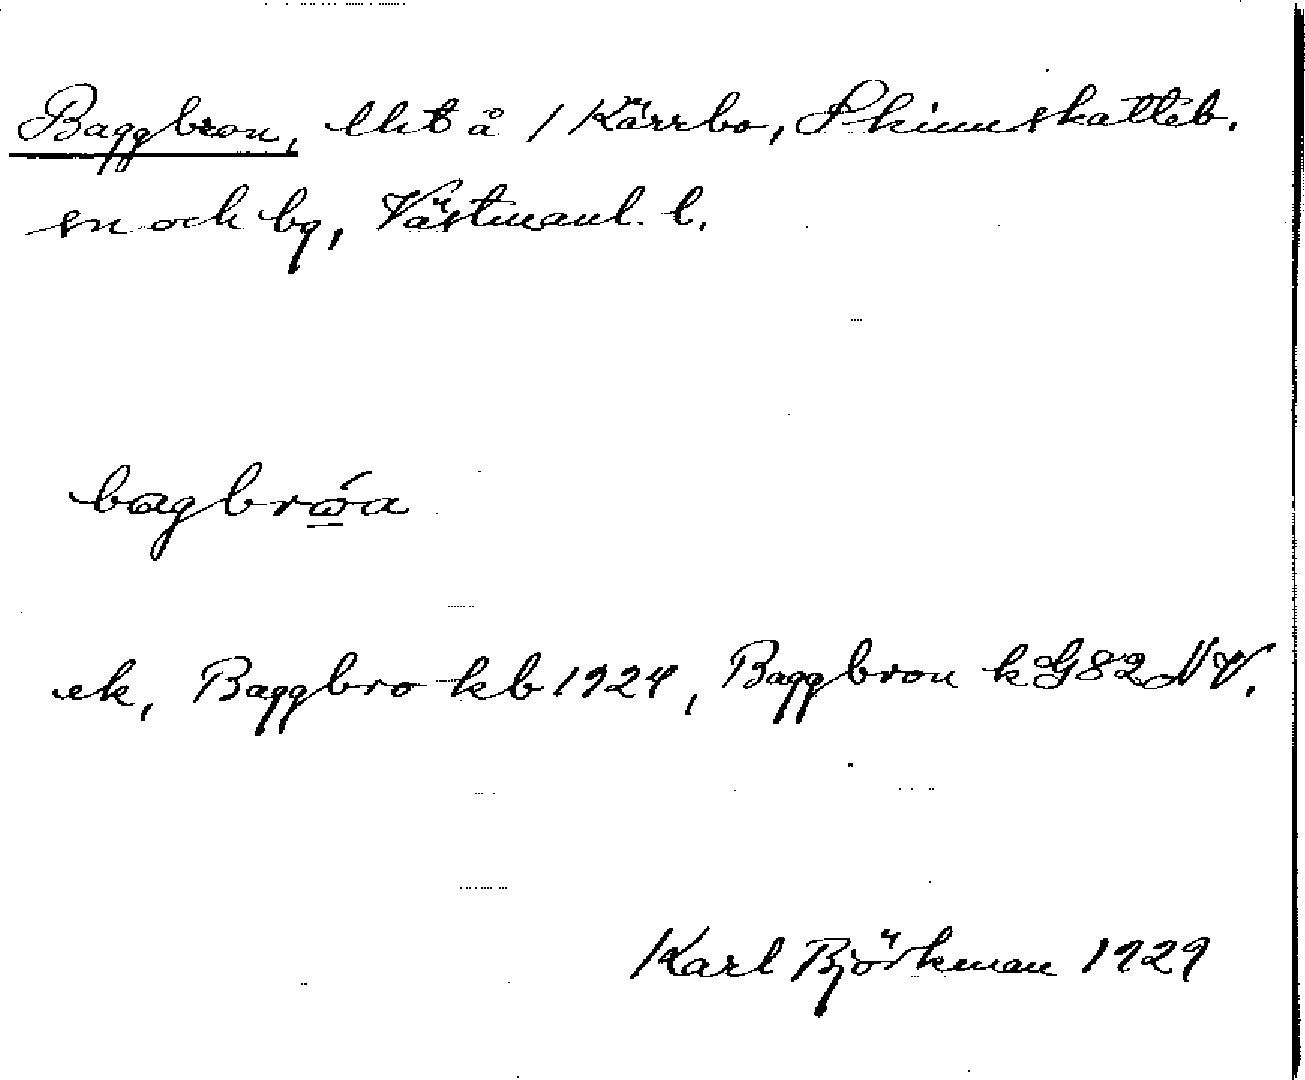 Baggbron, lht å / Kärrbo, Skinnskatteb.
sn och bg, Västmanl. l.
bagbrǿa
ek, Baggbro kb 1924, Baggbron kG82NV.
Karl Björkman 1929